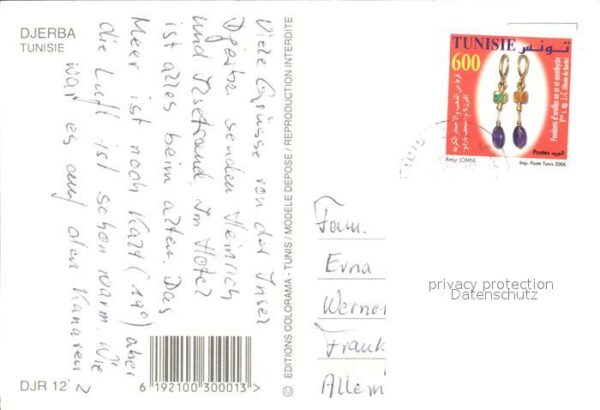 DJERBA
TUNISIE
Viele Grüsse von der Insel
Djerba senden Heinrich
und Im Hotel
ist alles beim alten. Das
Meer ist noch kalt (14°) aber
die Luft ist schon warm. Wie
war es auf den Kanaren?
DJR 12
6 192100 300013 >
© EDITIONS COLORAMA - TUNIS / MODELE DEPOSE / REPRODUCTION INTERDITE
TUNISIE تونس
600
Pendants d'oreilles en or et améthyste
Amor JOMNI
Postes البريد
Imp. Poste Tunis 2006
Fam.
Erna
Werner
Frank
Allem
privacy protection
Datenschutz